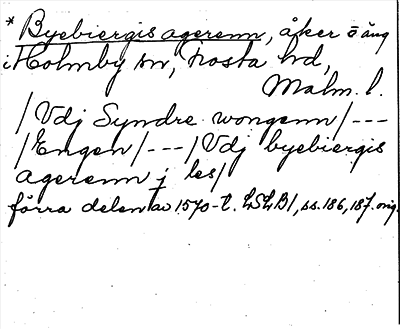 * Byebiergis agerenn, åker o äng
i Holmby sn, Frosta hd,
Malm. l.
/Vdj Syndre wongenn/ ---
/Engen/ --- /Vdj byebiergis
agerenn j les/
förra delen av 1570-t. LSLB1, ss. 186, 187. orig.